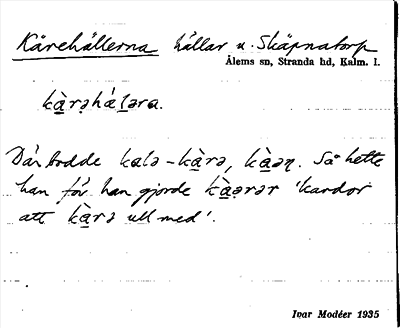 Kårehållerna hållar n. Skäpnatorp
Ålems sn, Stranda hd, Kalm. l.
kàrəhálərа.
Där bodde kalə-kàrə, kàəɳ. Så hette
han för han gjorde kàərər 'kardor
att kàrə ull med'.
Ivar Modéer 1935